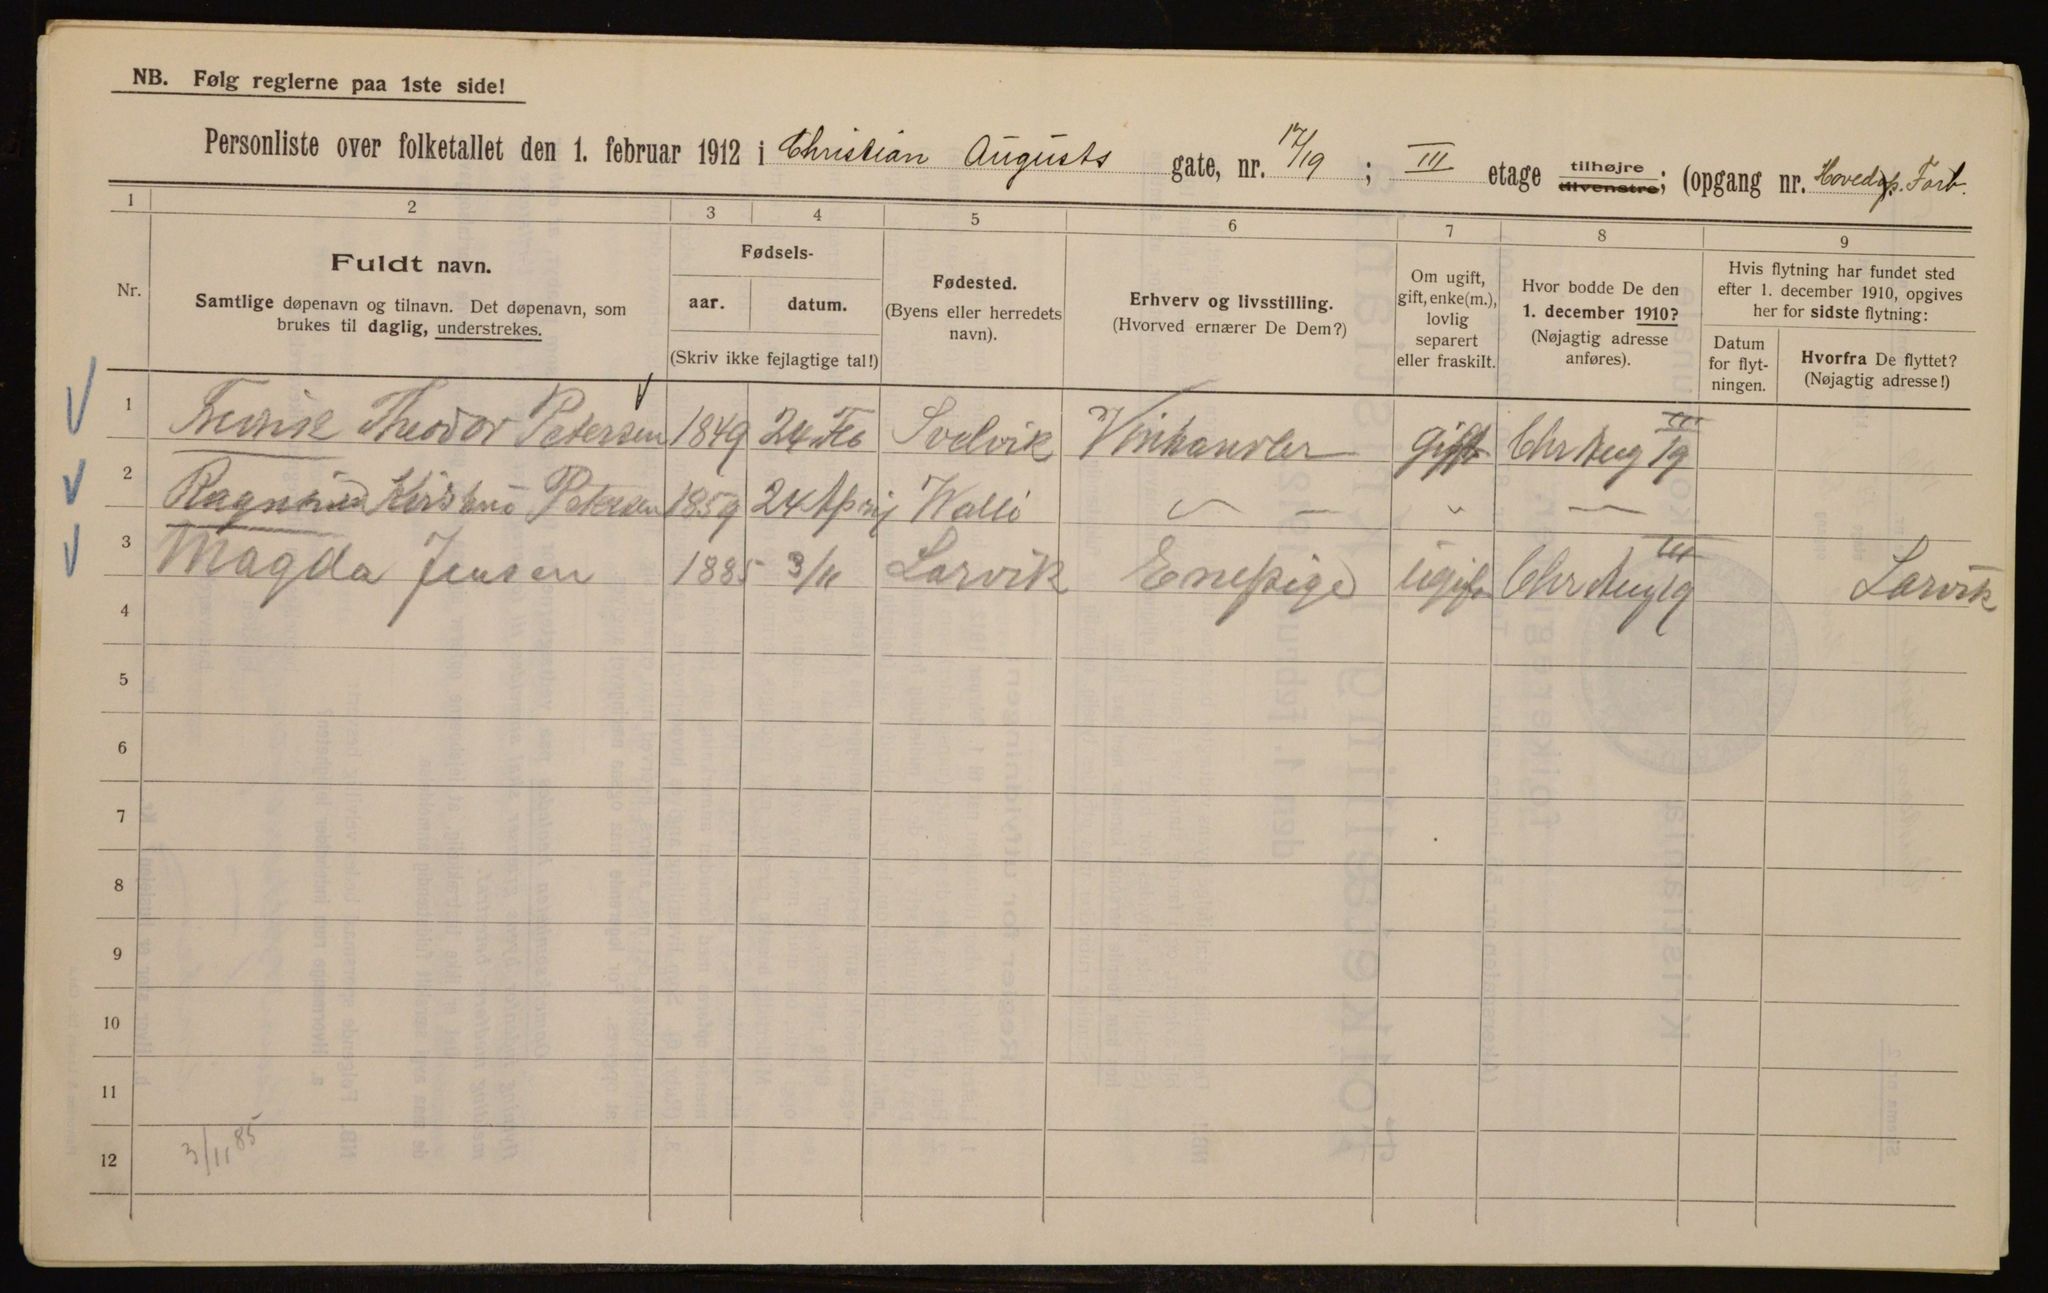 NB. Følg reglerne paa 1ste side!
Personliste over folketallet den 1. februar 1912 i Christian Augusts gate, nr. 17/19 ; III etage tilhøjre tilvenstre; (opgang nr. Hovedop. Forb.
1 2 3 4 5 6 7 8 9
Nr.
Fuldt navn.
Samtlige døpenavn og tilnavn. Det døpenavn, som
brukes til daglig, understrekes.
Fødsels-
aar. datum.
(Skriv ikke fejlagtige tal!)
Fødested.
(Byens eller herredets
navn).
Erhverv og livsstilling.
(Hvorved ernærer De Dem?)
Om ugift,
gift, enke(m.),
lovlig
separert
eller fraskilt.
Hvor bodde De den
1. december 1910?
(Nøjagtig adresse
anføres).
Hvis flytning har fundet sted
efter 1. december 1910, opgives
her for sidste flytning:
Datum
for flyt-
ningen.
Hvorfra De flyttet?
(Nøjagtig adresse!)
1 Fredrik Theodor Petersen 1849 24 Feb Svelvik Vinhandler gift Chr Aug 19 III
2 Petersen 1859 24 April Wallö
3 Magda Jensen 1885 3/11 Larvik Enepige ugift Chr Aug 19 III Larvik
4
5
6
7
8
9
10
11
12
3/11 85